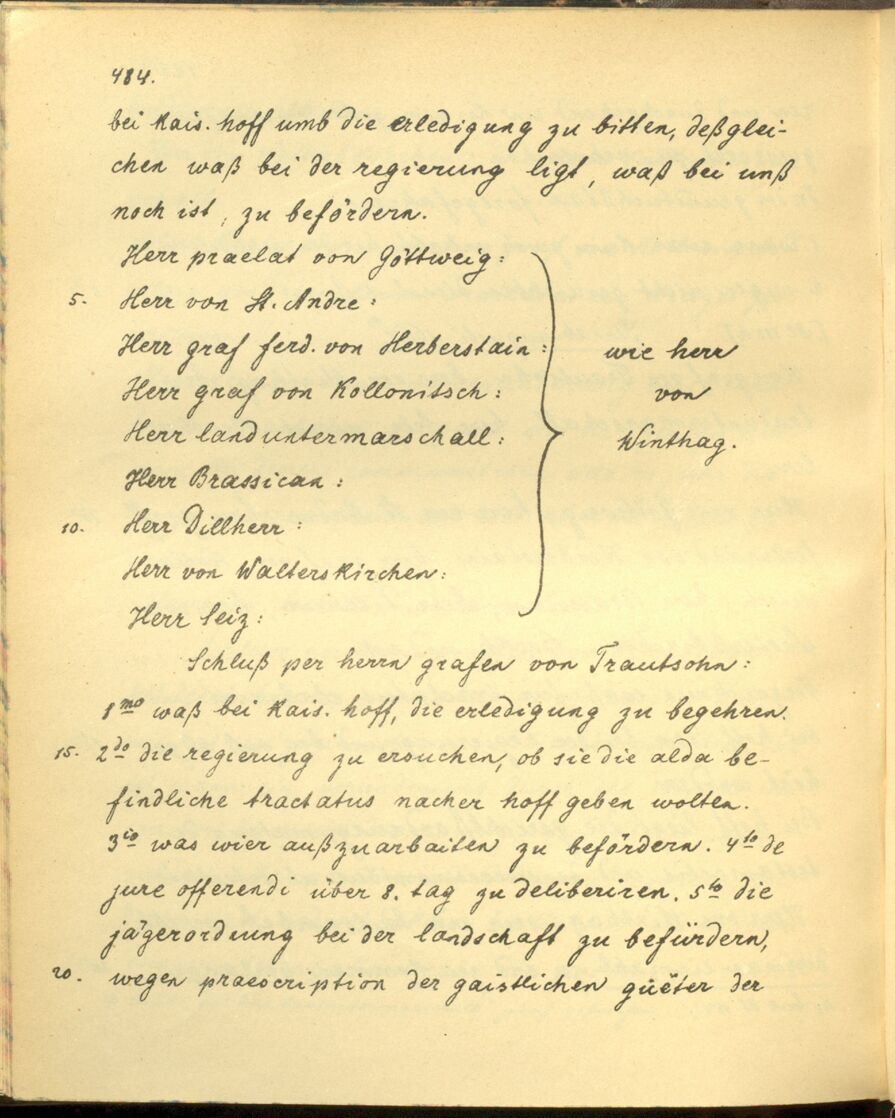 484.
bei kais. hoff umb die erledigung zu bitten, deßglei-
chen waß bei der regierung ligt, waß bei unß
noch ist, zu befördern.
Herr praelat von Göttweig:
5. Herr von St. Andre:
Herr graf ferd. von Herberstain:
Herr graf von Kollonitsch:
Herr landuntermarschall:
Herr Brassican:
10. Herr Dillherr:
Herr von Walterskirchen:
Herr Seiz:
wie herr
von
Winthag.
Schluß per herrn grafen von Trautsohn:
1mo waß bei kais. hoff, die erledigung zu begehren.
15. 2do die regierung zu ersuchen, ob sie die alda be-
findliche tractatus nacher hoff geben wolten.
3io was wier außzuarbaiten zu befördern. 4to de
jure offerendi über 8. tag zu deliberiren. 5to die
jägerordnung bei der landschaft zu befürdern,
20. wegen praescription der gaistlichen güëter der